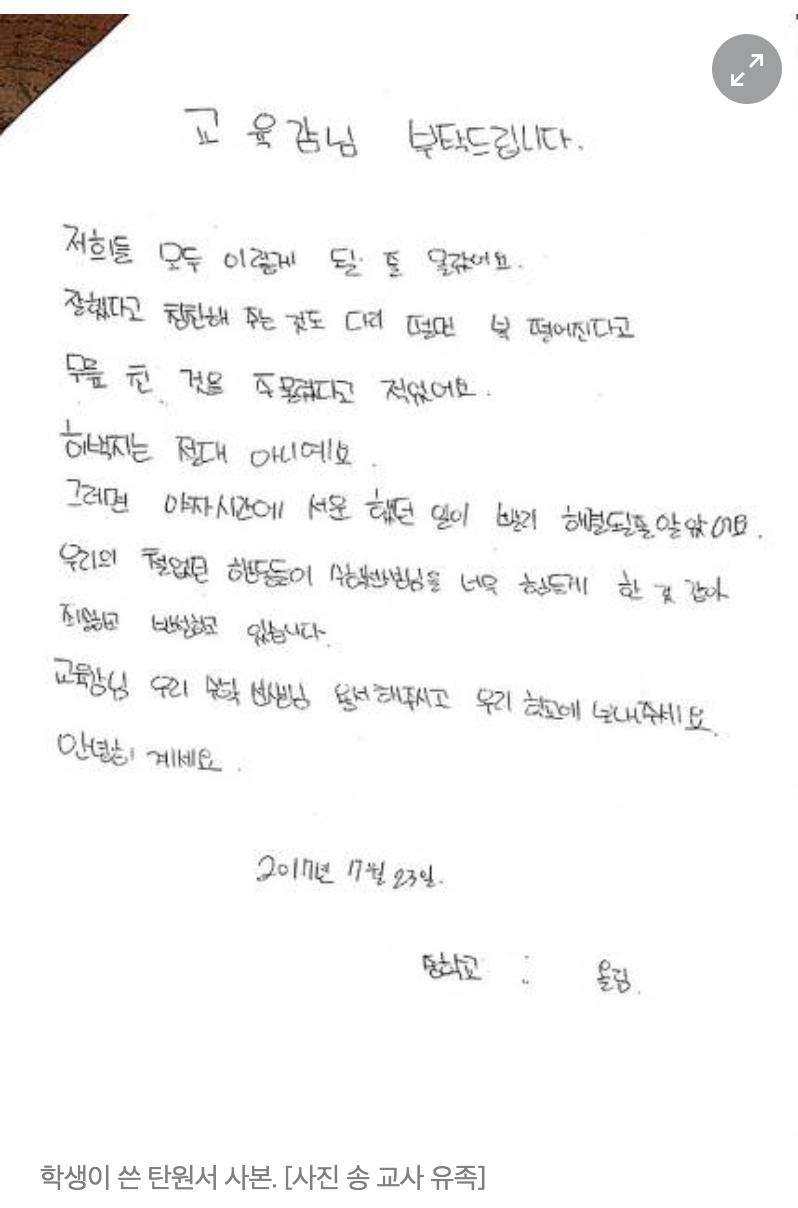 교육감님 부탁드립니다.
저희들 모두 이렇게 될 줄 몰랐어요.
잘했다고 칭찬해 주는 것도 다리 떨면 복 떨어진다고
무릎 친 것을 주물렀다고 적었어요.
허벅지는 절대 아니예요.
그러면 야자시간에 서운 했던 일이 빨리 해결될줄 알았어요.
우리의 철없던 행동들이 수학선생님을 너무 힘들게 한 것 같아
죄송하고 반성하고 있습니다.
교육감님 우리 수학 선생님 용서해주시고 우리 학교에 보내주세요.
안녕히 계세요.
2017년 7월 23일.
중학교 올림.
학생이 쓴 탄원서 사본. [사진 송 교사 유족]